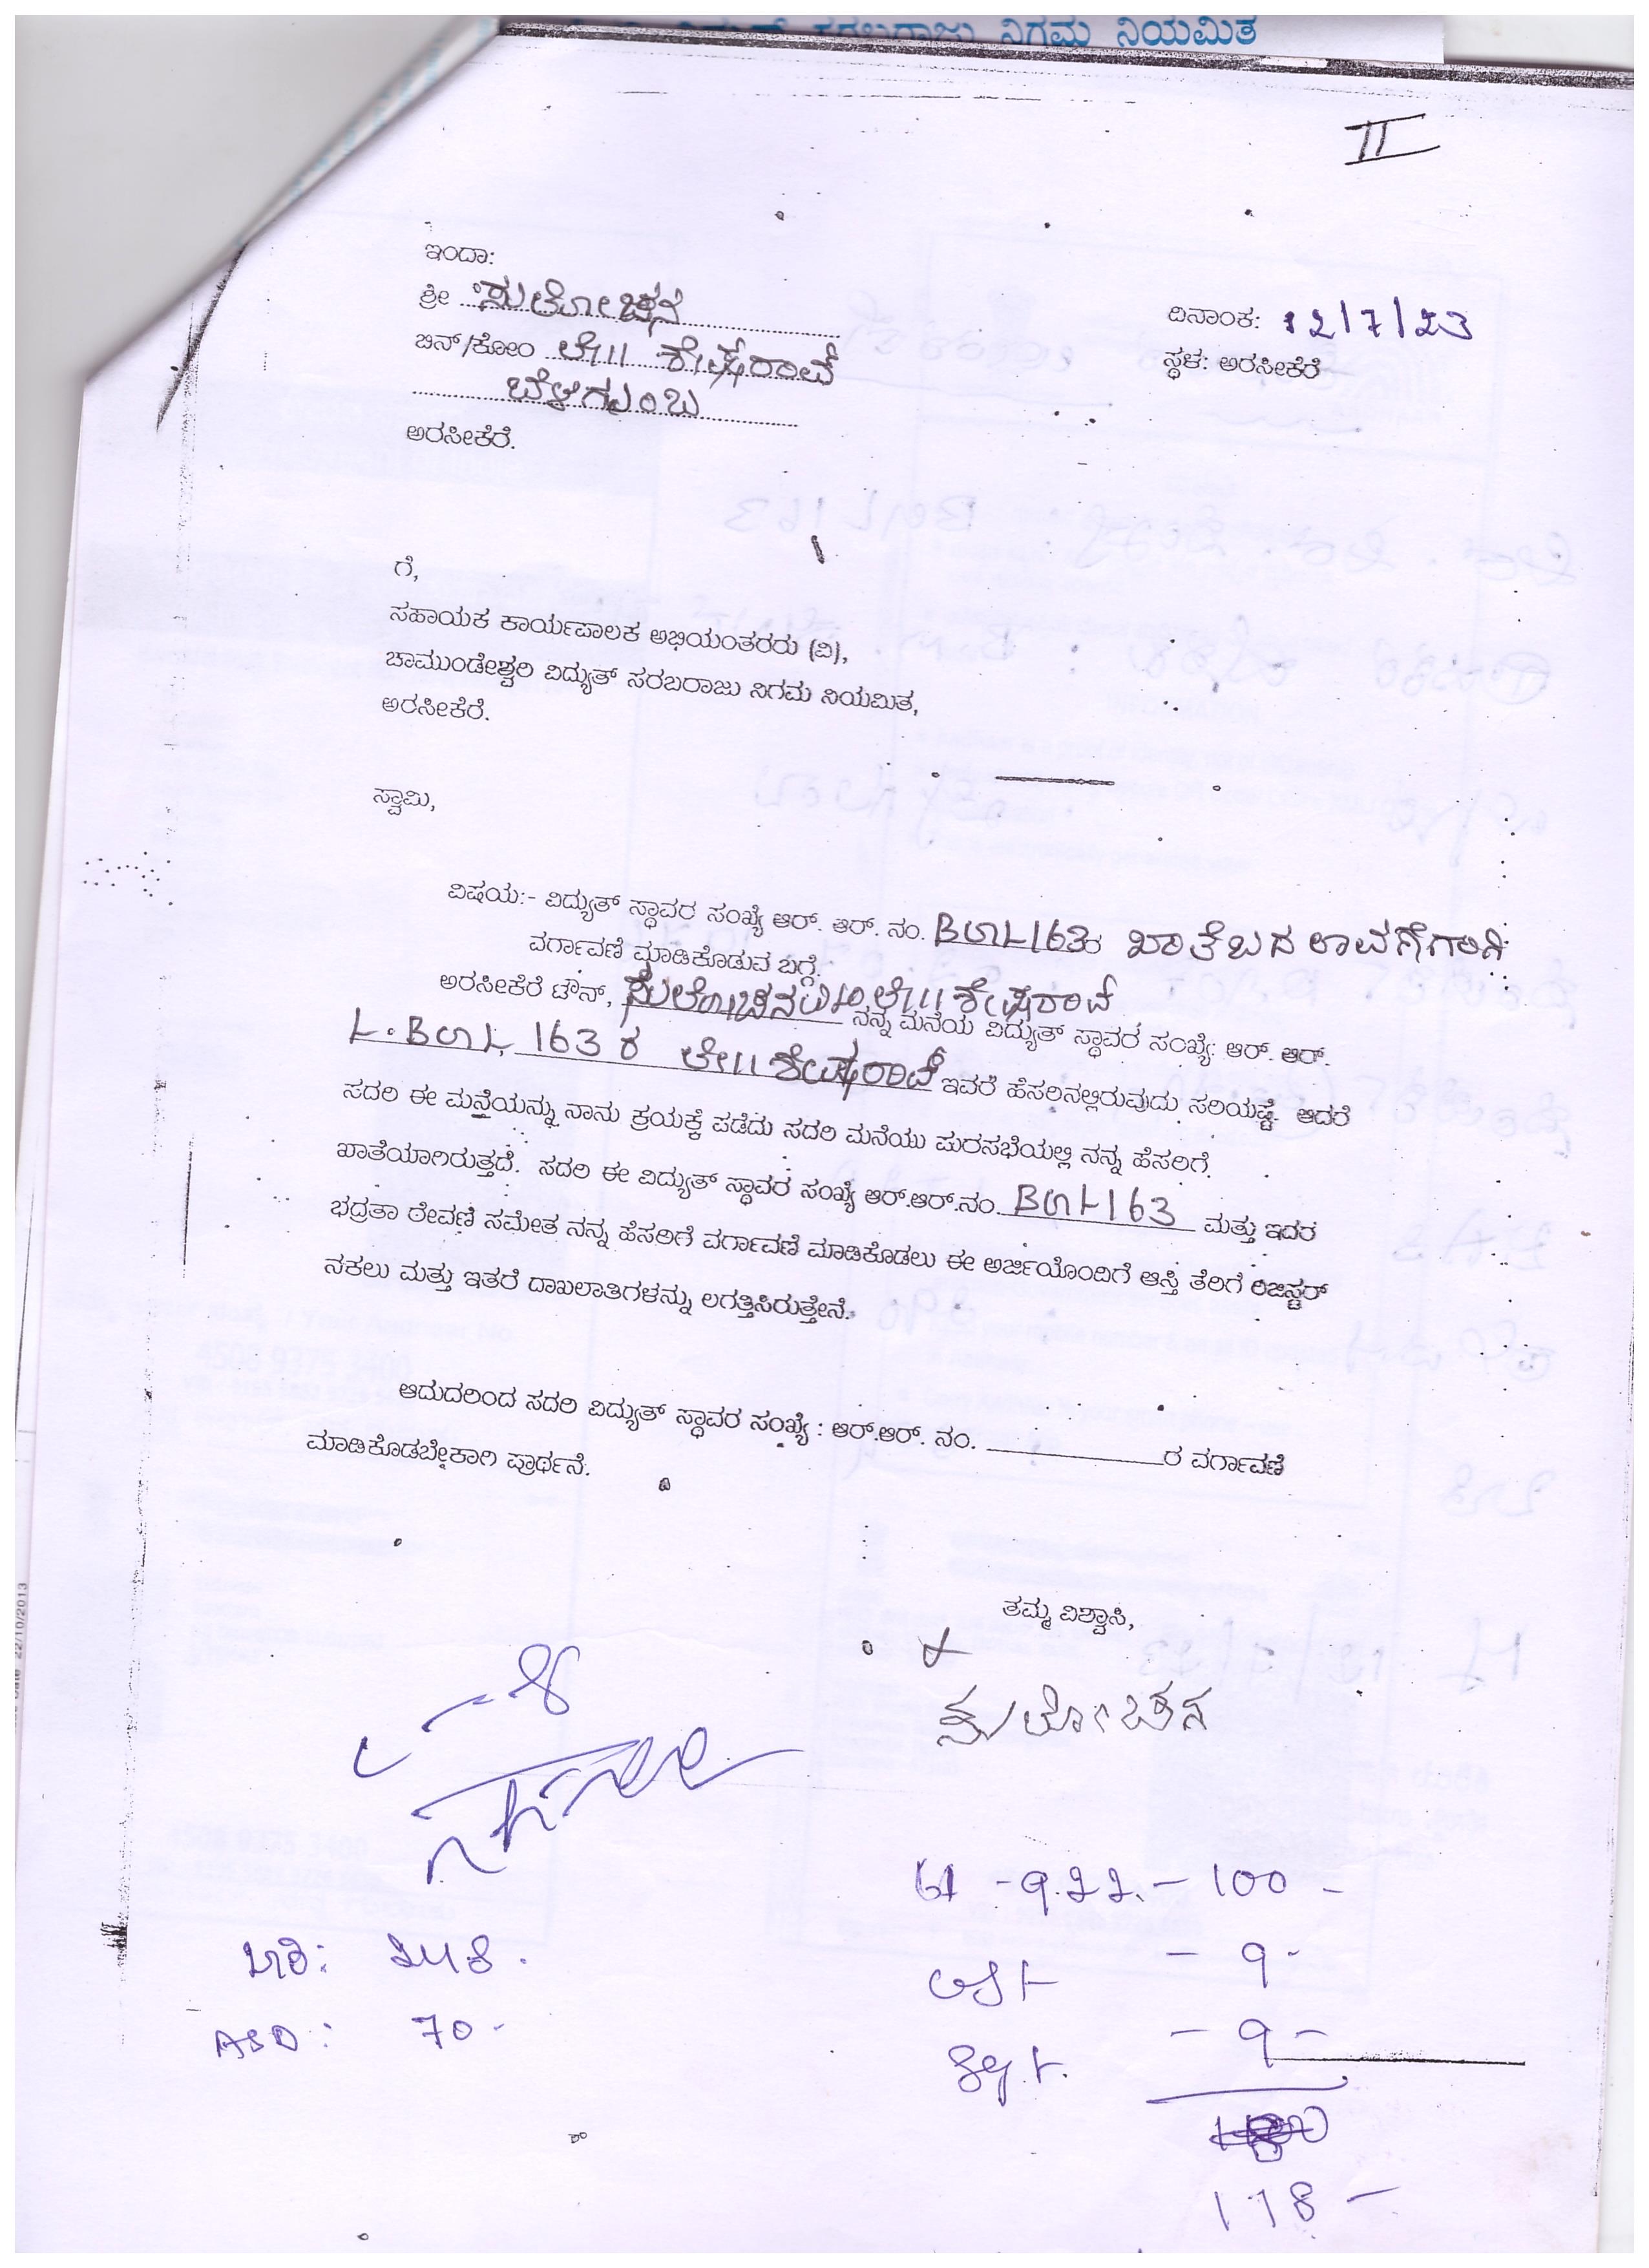 ನಿಗಮ ನಿಯಮಿತ
II
ಇಂದಾ:
ಶ್ರೀ ಸುಲೋಚನ
ಬಿನ್/ಕೋಂ ಲೇ॥ ಶೇಷರಾವ್
ಬೆಳಗುಂಬ
ಅರಸೀಕೆರೆ.
ದಿನಾಂಕ: 12/7/23
ಸ್ಥಳ: ಅರಸೀಕೆರೆ
ಗೆ,
ಸಹಾಯಕ ಕಾರ್ಯಪಾಲಕ ಅಭಿಯಂತರರು (ವಿ),
ಚಾಮುಂಡೇಶ್ವರಿ ವಿದ್ಯುತ್ ಸರಬರಾಜು ನಿಗಮ ನಿಯಮಿತ,
ಅರಸೀಕೆರೆ.
ಸ್ವಾಮಿ,
ವಿಷಯ:- ವಿದ್ಯುತ್ ಸ್ಥಾವರ ಸಂಖ್ಯೆ ಆರ್. ಆರ್. ನಂ. BGL163ರ ಖಾತೆ ಬದಲಾವಣೆಗಾಗಿ
ವರ್ಗಾವಣೆ ಮಾಡಿಕೊಡುವ ಬಗ್ಗೆ.
ಅರಸೀಕೆರೆ ಟೌನ್, ಸುಲೋಚನ ಲೇ॥ ಶೇಷರಾವ್ ನನ್ನ ಮನೆಯ ವಿದ್ಯುತ್ ಸ್ಥಾವರ ಸಂಖ್ಯೆ: ಆರ್. ಆರ್.
L. BGL 163 ರ ಲೇ॥ ಶೇಷರಾವ್ ಇವರೆ ಹೆಸರಿನಲ್ಲಿರುವುದು ಸರಿಯಷ್ಟೆ. ಆದರೆ
ಸದರಿ ಈ ಮನೆಯನ್ನು ನಾನು ಕ್ರಯಕ್ಕೆ ಪಡೆದು ಸದರಿ ಮನೆಯು ಪುರಸಭೆಯಲ್ಲಿ ನನ್ನ ಹೆಸರಿಗೆ
ಖಾತೆಯಾಗಿರುತ್ತದೆ. ಸದರಿ ಈ ವಿದ್ಯುತ್ ಸ್ಥಾವರ ಸಂಖ್ಯೆ ಆರ್.ಆರ್.ನಂ. BGL163 ಮತ್ತು ಇದರ
ಭದ್ರತಾ ಠೇವಣಿ ಸಮೇತ ನನ್ನ ಹೆಸರಿಗೆ ವರ್ಗಾವಣೆ ಮಾಡಿಕೊಡಲು ಈ ಅರ್ಜಿಯೊಂದಿಗೆ ಆಸ್ತಿ ತೆರಿಗೆ ರಿಜಿಸ್ಟರ್
ನಕಲು ಮತ್ತು ಇತರೆ ದಾಖಲಾತಿಗಳನ್ನು ಲಗತ್ತಿಸಿರುತ್ತೇನೆ.
ಆದುದರಿಂದ ಸದರಿ ವಿದ್ಯುತ್ ಸ್ಥಾವರ ಸಂಖ್ಯೆ : ಆರ್.ಆರ್. ನಂ. ____________ ರ ವರ್ಗಾವಣೆ
ಮಾಡಿಕೊಡಬೇಕಾಗಿ ಪ್ರಾರ್ಥನೆ.
ತಮ್ಮ ವಿಶ್ವಾಸಿ,
ಸುಲೋಚನ
61 - 922. - 100 -
- 9 -
- 9 -
118 -
248.
ASD: 70-
Date 22/10/2013